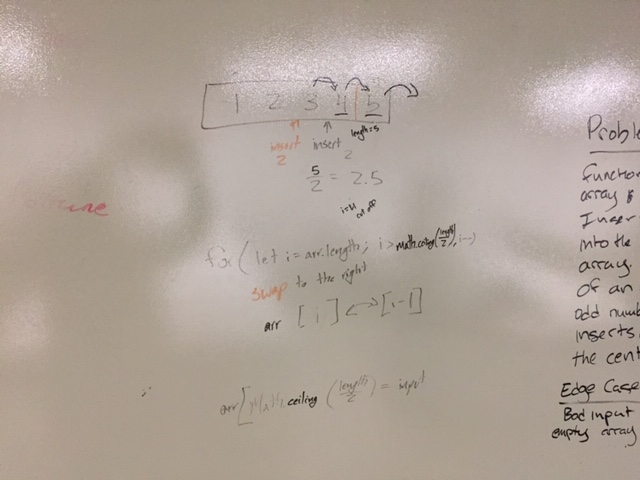 1 2 3 4 5
length=5
insert insert
2 2
5/2 = 2.5
cut off
for (let i = arr.length; i > math.ceiling(length/2), i--)
swap to the right
arr [i] [i-1]
arr[Math.ceiling (length/2) = input
Proble
function
array &
Inser
into the
array.
of an
odd numb
inserts
the cent
Edge Case
Bad input
empty array